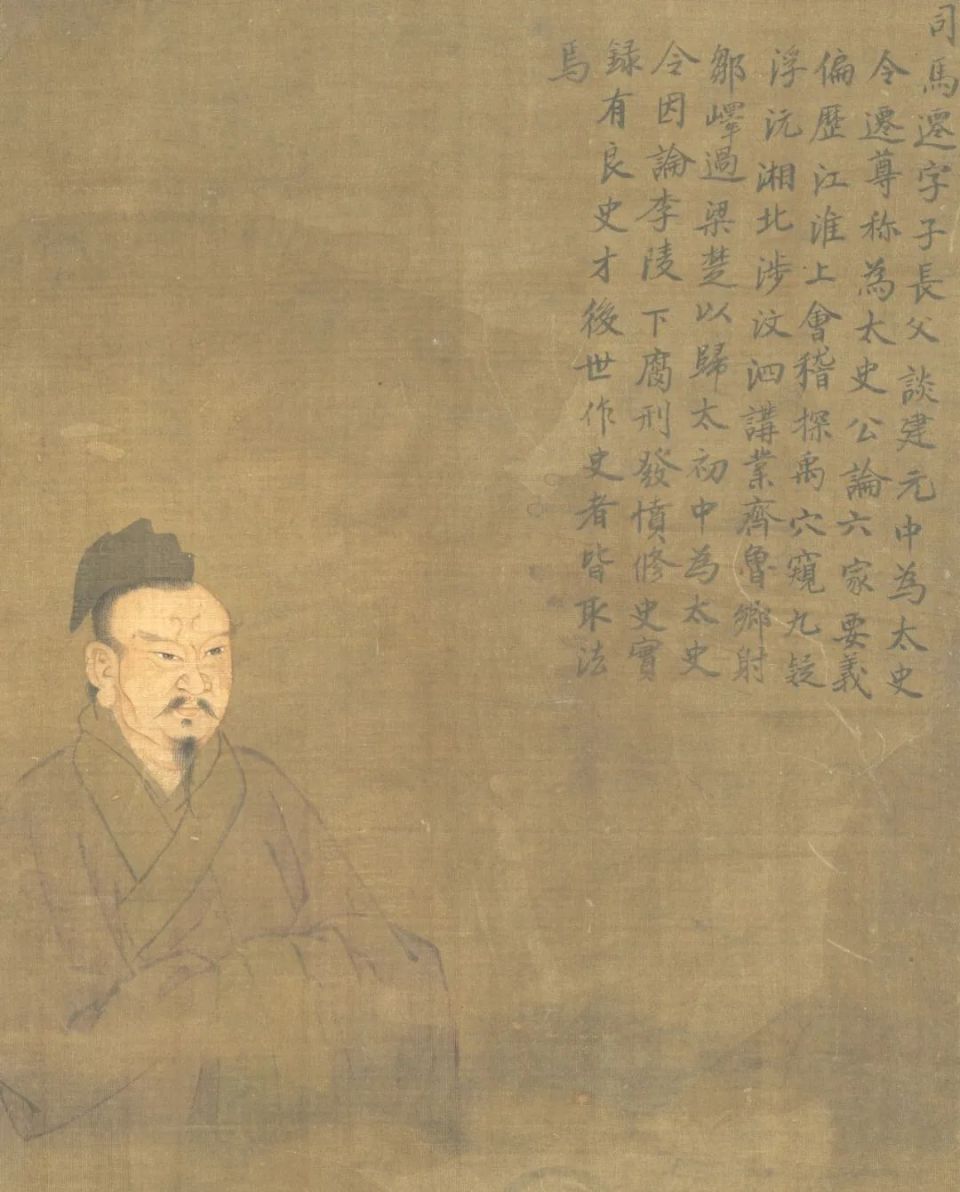 司馬遷字子長父談建元中為太史
令遷尊称為太史公論六家要義
偏歷江淮上會稽探禹穴窺九疑
浮沅湘北涉汶泗講業齊魯鄉射
鄒嶧過梁楚以歸太初中為太史
令因論李陵下腐刑發憤修史實
録有良史才後世作史者皆取法
焉